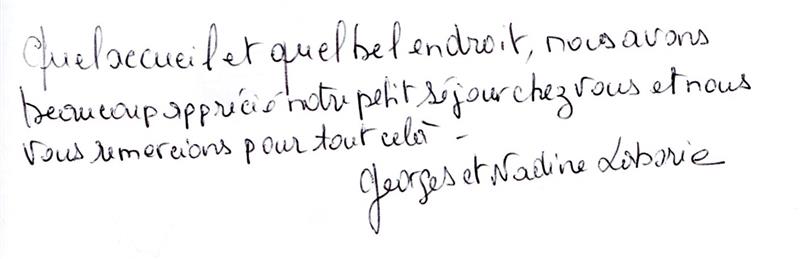 Quel accueil et quel bel endroit, nous avons
beaucoup apprécié notre petit séjour chez vous et nous
vous remercions pour tout celà -
Georges et Nadine Laborie